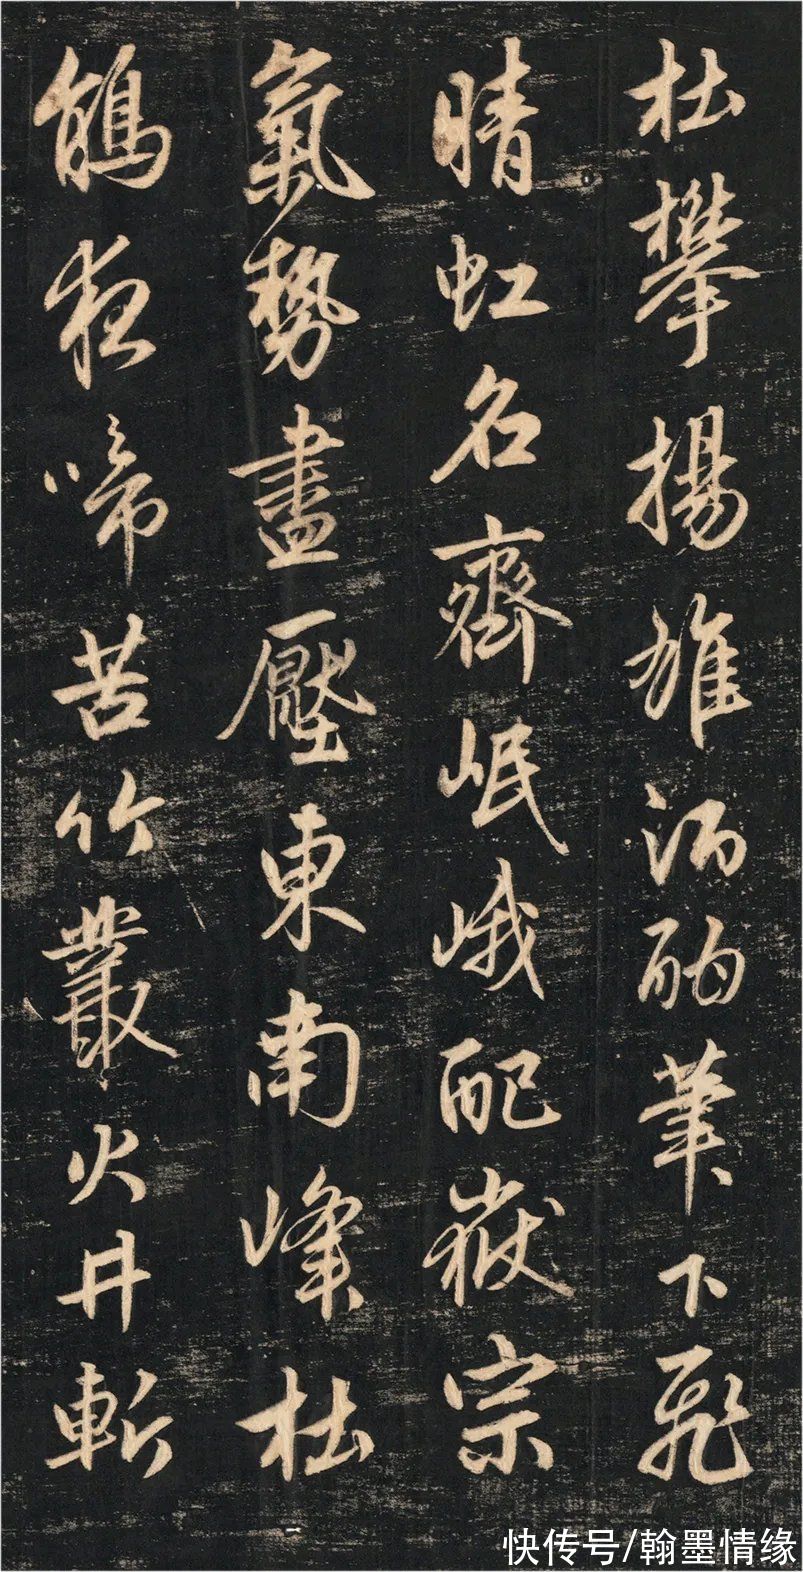 杜攀揚雄酒酣筆下飛
晴虹名齊岷峨配嶽宗
氣勢盡壓東南峰杜
鵑夜啼苦竹叢火井斬
快传号/翰墨情缘